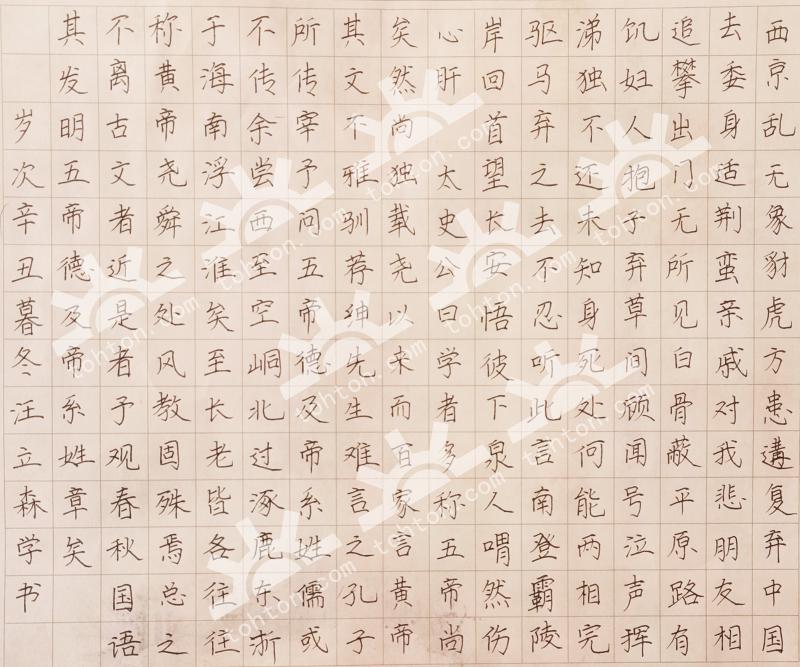 西京乱无象豺虎方患遘复弃中国
去委身适荆蛮亲戚对我悲朋友相
追攀出门无所见白骨蔽平原路有
饥妇人抱子弃草间顾闻号泣声挥
涕独不还未知身死处何能两相完
驱马弃之去不忍听此言南登霸陵
岸回首望长安悟彼下泉人喟然伤
心肝 太史公曰学者多称五帝尚
矣然尚独载尧以来而百家言黄帝
其文不雅驯荐绅先生难言之孔子
所传宰予问五帝德及帝系姓儒或
不传余尝西至空峒北过涿鹿东浙
于海南浮江淮矣至长老皆各往往
称黄帝尧舜之处风教固殊焉总之
不离古文者近是者予观春秋国语
其发明五帝德及帝系姓章矣
岁次辛丑暮冬汪立森学书
tohton.com
tohton.com
tohton.com
tohton.com
tohton.com
tohton.com
tohton.com
tohton.com
tohton.com